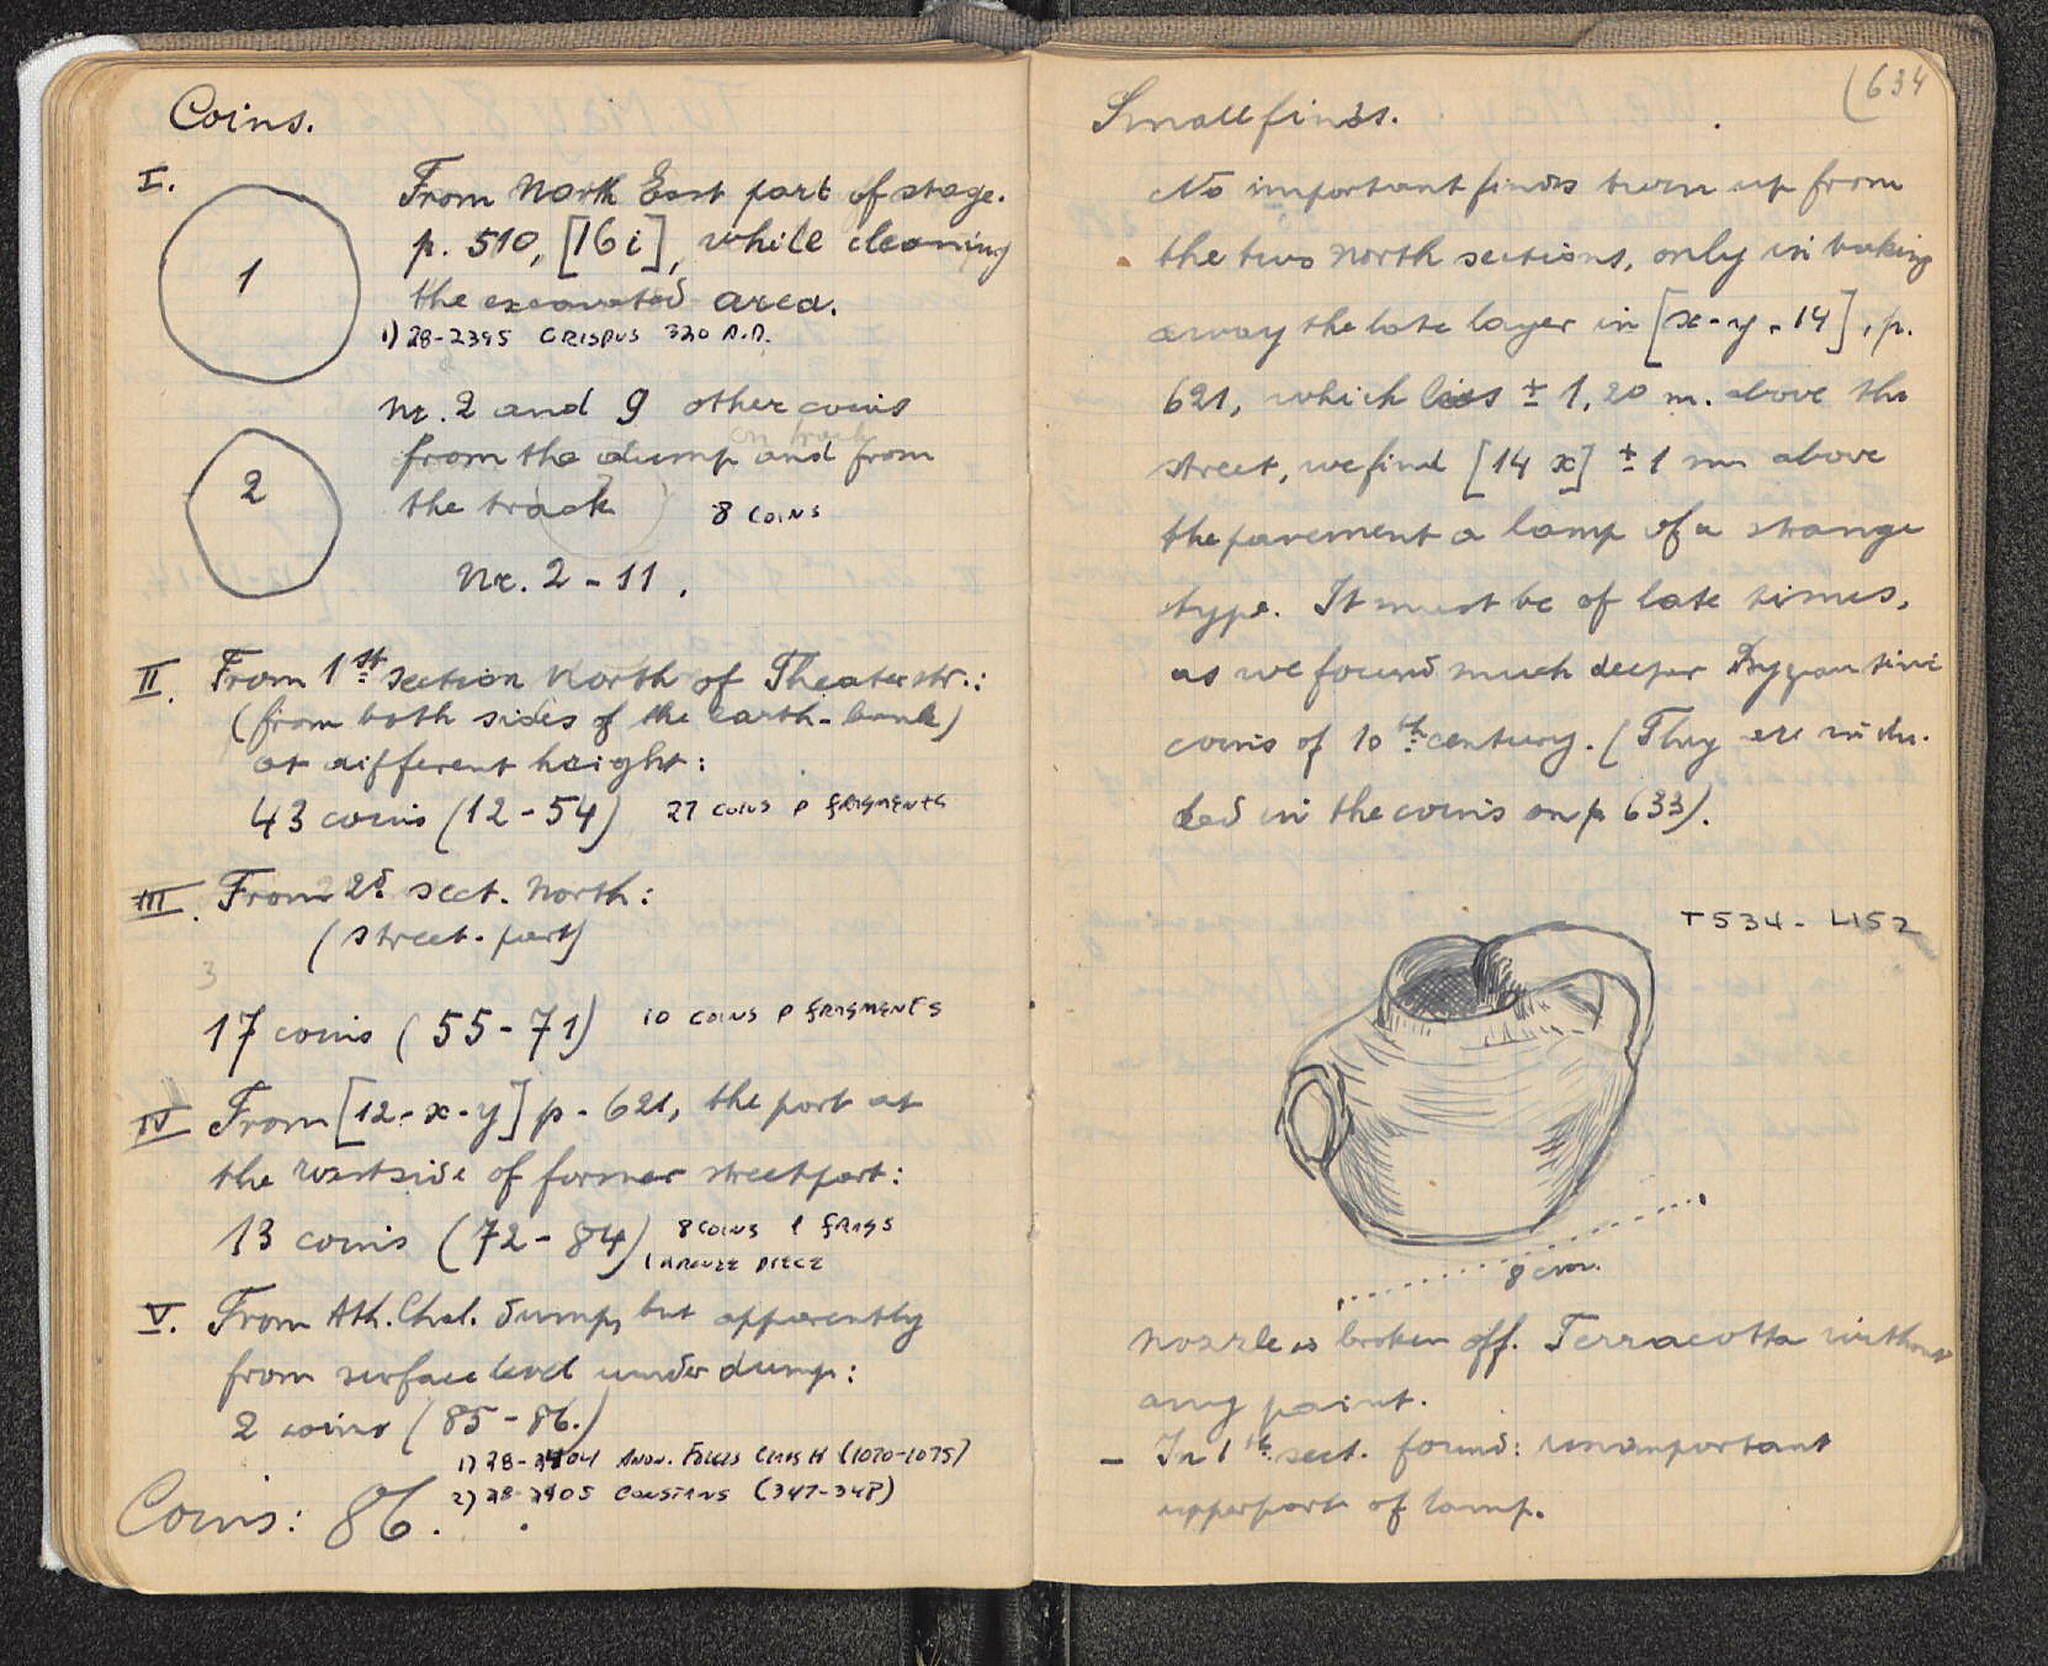 Coins.
I.
1
From North East part of stage.
p. 510, [16 i], while cleaning
the excavated area.
1) 28-2395 CRISPUS 320 A.D.
Nr. 2 and 9 other coins
2
on track
from the dump and from
the track 8 COINS
Nr. 2 - 11.
II. From 1st section North of Theaterstr.:
(from both sides of the earth-bank)
at different height:
43 coins (12 - 54) 27 COINS P FRAGMENTS
III. From 2d. sect. North:
(street-part)
3
17 coins (55 - 71) 10 COINS P FRAGMENTS
IV From [12 - x - y] p. 621, the part at
the westside of former streetpart:
13 coins (72 - 84) 8 COINS 1 FRAGS
1 BRONZE PIECE
V. From Ath. Chal. dump, but apparently
from surface level under dump:
2 coins (85 - 86.)
1) 28-2404 ANON. FOLLIS CLASS H (1070-1075)
2) 28-2405 CONSTANS (347-348)
Coins: 86.
(634
Smallfinds.
No important finds turn up from
the two north sections, only in taking
away the late layer in [x - y - 14], p.
621, which lies ± 1,20 m. above the
street, we find [14 x] ± 1 m above
the pavement a lamp of a strange
type. It must be of late times,
as we found much deeper Byzantine
coins of 10th century. (They are inclu-
ded in the coins on p 633).
T534 - L152
8 cm.
Nozzle is broken off. Terracotta without
any paint.
- In 1th sect. found: unimportant
upperpart of lamp.